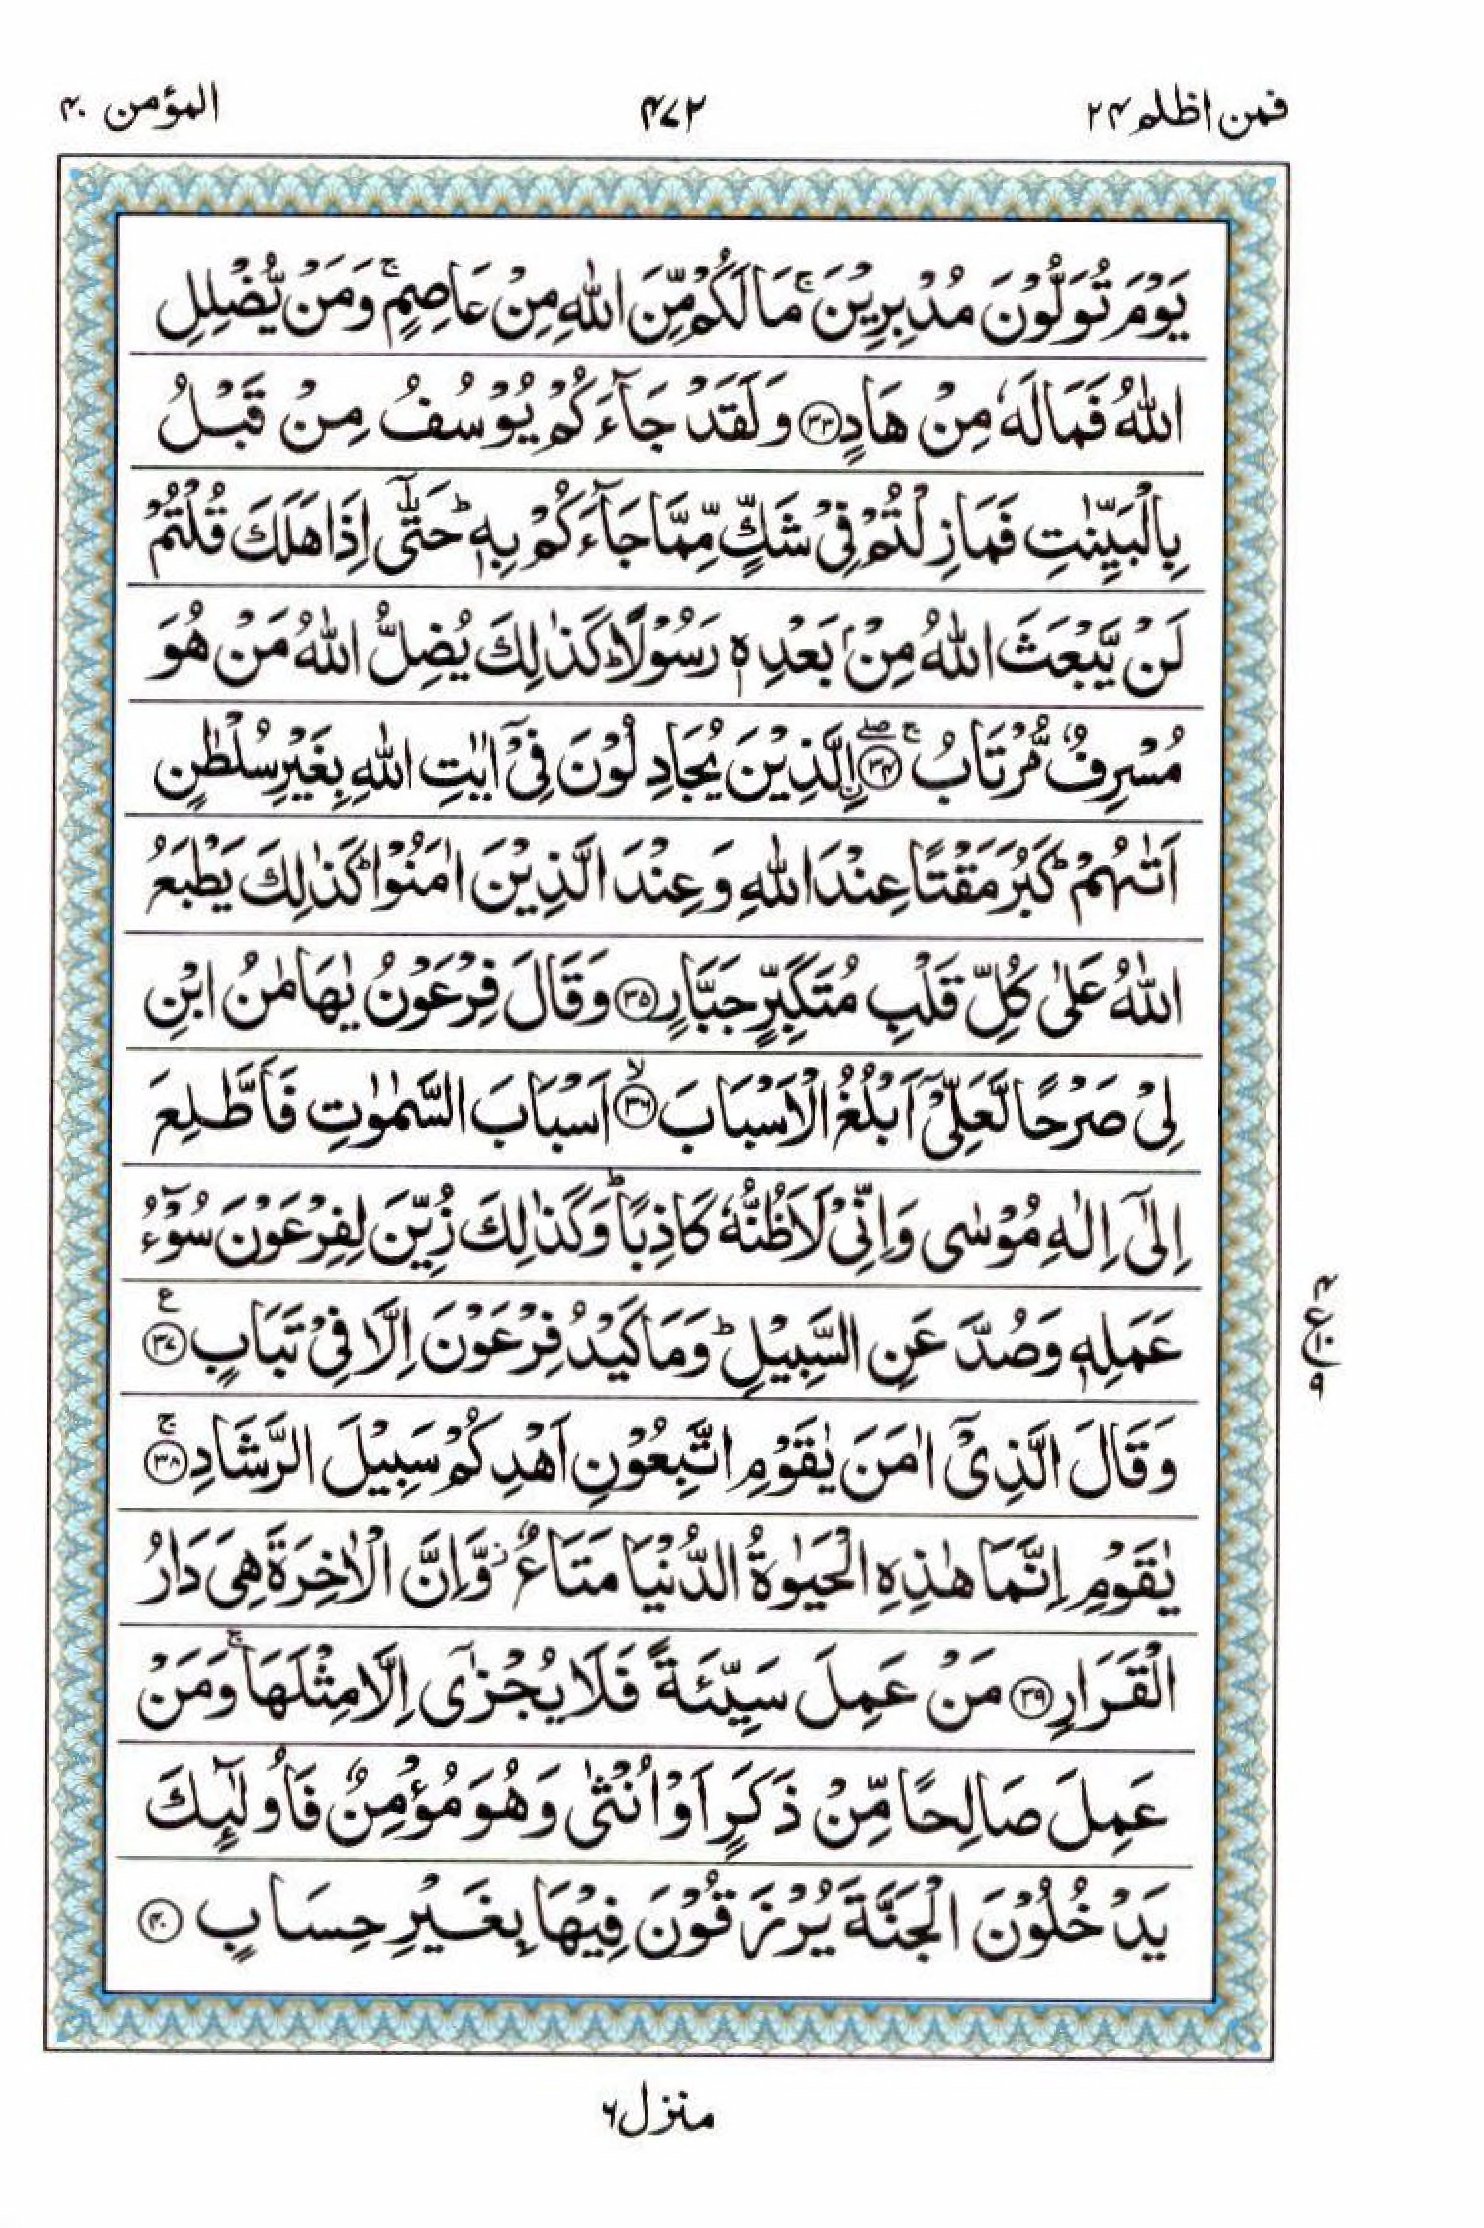 فمن اظلم ۲۴
۴۷۲
المؤمن ۴۰
يَوْمَ تُوَلُّوْنَ مُدْبِرِيْنَ ۚ مَا لَكُمْ مِّنَ اللّٰهِ مِنْ عَاصِمٍ ۚ وَمَنْ يُّضْلِلِ
اللّٰهُ فَمَا لَهٗ مِنْ هَادٍ ﴿۳۳﴾ وَلَقَدْ جَآءَكُمْ يُوْسُفُ مِنْ قَبْلُ
بِالْبَيِّنٰتِ فَمَا زِلْتُمْ فِيْ شَكٍّ مِّمَّا جَآءَكُمْ بِهٖ ؕ حَتّٰٓى اِذَا هَلَكَ قُلْتُمْ
لَنْ يَّبْعَثَ اللّٰهُ مِنْۢ بَعْدِهٖ رَسُوْلًا ؕ كَذٰلِكَ يُضِلُّ اللّٰهُ مَنْ هُوَ
مُسْرِفٌ مُّرْتَابُ ۚۖ ﴿۳۴﴾ اۨلَّذِيْنَ يُجَادِلُوْنَ فِيْٓ اٰيٰتِ اللّٰهِ بِغَيْرِ سُلْطٰنٍ
اَتٰىهُمْ ؕ كَبُرَ مَقْتًا عِنْدَ اللّٰهِ وَعِنْدَ الَّذِيْنَ اٰمَنُوْا ؕ كَذٰلِكَ يَطْبَعُ
اللّٰهُ عَلٰى كُلِّ قَلْبِ مُتَكَبِّرٍ جَبَّارٍ ﴿۳۵﴾ وَقَالَ فِرْعَوْنُ يٰهَامٰنُ ابْنِ
لِيْ صَرْحًا لَّعَلِّيْٓ اَبْلُغُ الْاَسْبَابَ ۙ ﴿۳۶﴾ اَسْبَابَ السَّمٰوٰتِ فَاَطَّلِعَ
اِلٰٓى اِلٰهِ مُوْسٰى وَاِنِّيْ لَاَظُنُّهٗ كَاذِبًا ؕ وَكَذٰلِكَ زُيِّنَ لِفِرْعَوْنَ سُوْٓءُ
عَمَلِهٖ وَصُدَّ عَنِ السَّبِيْلِ ؕ وَمَا كَيْدُ فِرْعَوْنَ اِلَّا فِيْ تَبَابٍ ﴿۳۷﴾ ع
۴
ع ۱۰
۹
وَقَالَ الَّذِيْٓ اٰمَنَ يٰقَوْمِ اتَّبِعُوْنِ اَهْدِكُمْ سَبِيْلَ الرَّشَادِ ۚ ﴿۳۸﴾
يٰقَوْمِ اِنَّمَا هٰذِهِ الْحَيٰوةُ الدُّنْيَا مَتَاعٌ ؗ وَّاِنَّ الْاٰخِرَةَ هِيَ دَارُ
الْقَرَارِ ﴿۳۹﴾ مَنْ عَمِلَ سَيِّئَةً فَلَا يُجْزٰٓى اِلَّا مِثْلَهَا ۚ وَمَنْ
عَمِلَ صَالِحًا مِّنْ ذَكَرٍ اَوْ اُنْثٰى وَهُوَ مُؤْمِنٌ فَاُولٰٓئِكَ
يَدْخُلُوْنَ الْجَنَّةَ يُرْزَقُوْنَ فِيْهَا بِغَيْرِ حِسَابٍ ﴿۴۰﴾
منزل ۶